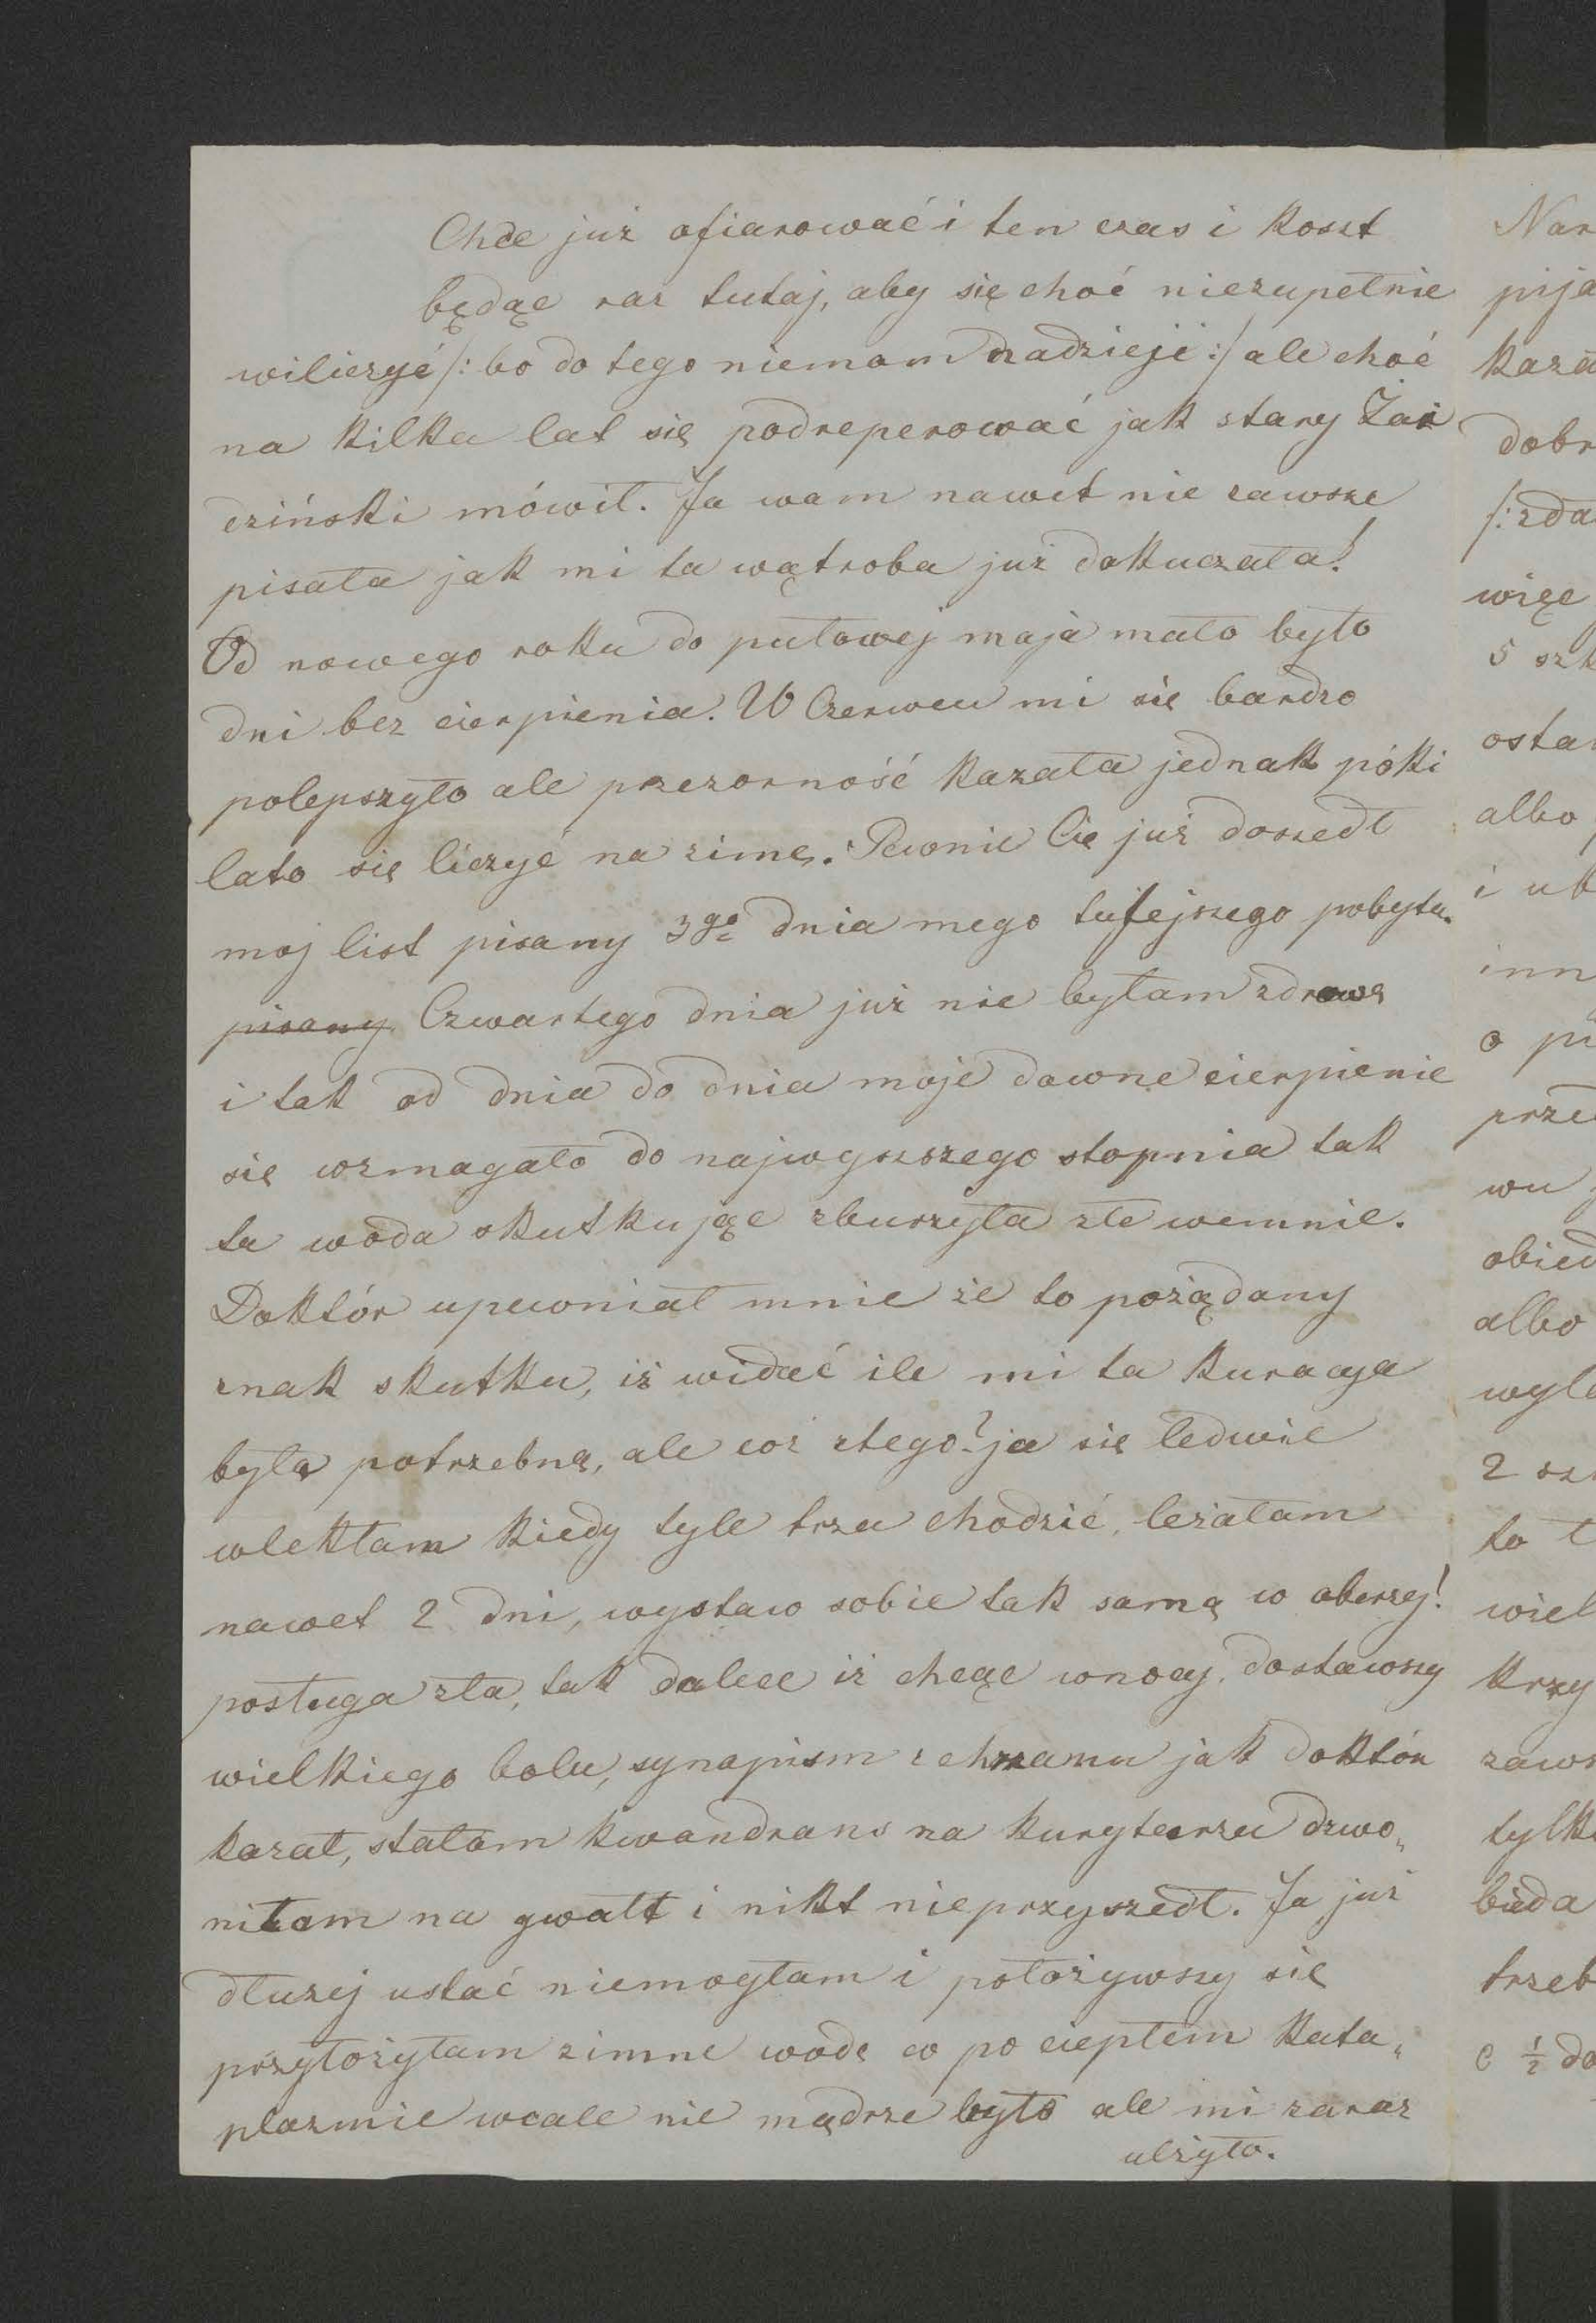 Chce już ofiarować i ten czas i koszt
będąc raz tutaj, aby się choć niezupełnie
wiliczyć /: bo do tego niemam nadzieji :/ ale choć
na kilka lat się podreperować jak stary Żar
dziński mówił. Ja wam nawet nie zawsze
pisała jak mi ta wątroba już dokuczała!
Od nowego roku do pułowej maja mało było
dni bez cierpienia. W Czerwcu mi się bardzo
polepszyło ale przezorność kazała jednak póki
lato się liczyć na zimę. Pewnie Cię już doszedł
moj list pisany 3go dnia mego tutejszego pobytu.
pisany Czwartego dnia już nie byłam zdrową
i tak od dnia do dnia moje dawne cierpienie
się wzmagało do najwyszszego stopnia tak
ta woda skutkując zburzyła złe wemnie.
Doktór upewniał mnie że to pożądany
znak skutku, iż widać ile mi ta kuracya
była potrzebną, ale coż ztego? ja się ledwie
wlekłam kiedy tyle trza chodzić, leżałam
nawet 2 dni, wystaw sobie tak samą w oberzy!
posługa zła, tak dalece iż chcąc wnocy, dostawszy
wielkiego bolu, synapism z chrzanu jak doktór
kazał, stałam kwandrans na kurytarzu dzwo„
niłam na gwałt i nikt nieprzyszedł. Ja już
dłużej ustać niemogłam i położywszy się
przyłożyłam zimne wodę co po ciepłem kata„
plazmie wcale nie mądrze było ale mi zaraz
ulżyło.
Nar
pija
kaza
dobr
/: zda
więc
5 szk
ostan
albo
i uk
inn
o pi
prze
wu
obied
albo
wyle
2 sz
to
wiel
krzy
zaws
tylk
bieda
trzeb
C ½ do